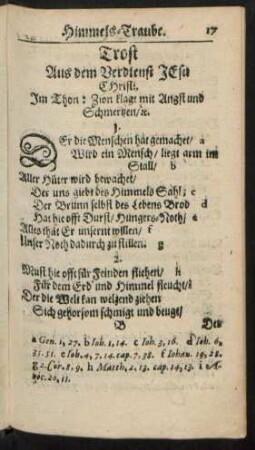 Himmels-Traube. 17
Trost
Aus dem Verdienst JEsu
CHristi.
Im Thon: Zion klagt mit Angst und
Schmertzen/ ꝛc.
1.
DEr die Menschen hat gemachet/ a
Wird ein Mensch/ liegt arm im
Stall/ b
Aller Hüter wird bewachet/
Der uns giebt des Himmels Sahl; c
Der Brunn selbst des Lebens Brod d
Hat hie offt Durst/ Hungers-Noth/ e
Alles that Er unsernt willen/ f
Unser Noth dadurch zu stillen. g
2.
Must hie offt für Feinden fliehen/ h
Für dem Erd und Himmel fleucht/ i
Der die Welt kan welgend ziehen
Sich gehorsom schmigt und beugt/
B Der
a Gen. 1, 27. b Ioh. 1, 14. c Ioh. 3, 16. d Ioh. 6,
35. 51. e Ioh. 4, 7. 14. cap. 7. 38. f Iohan. 19, 28.
g 2. Cor. 8, 9. h Matth. 2, 13. cap. 4, 14. 13. i A-
poc. 20, 11.